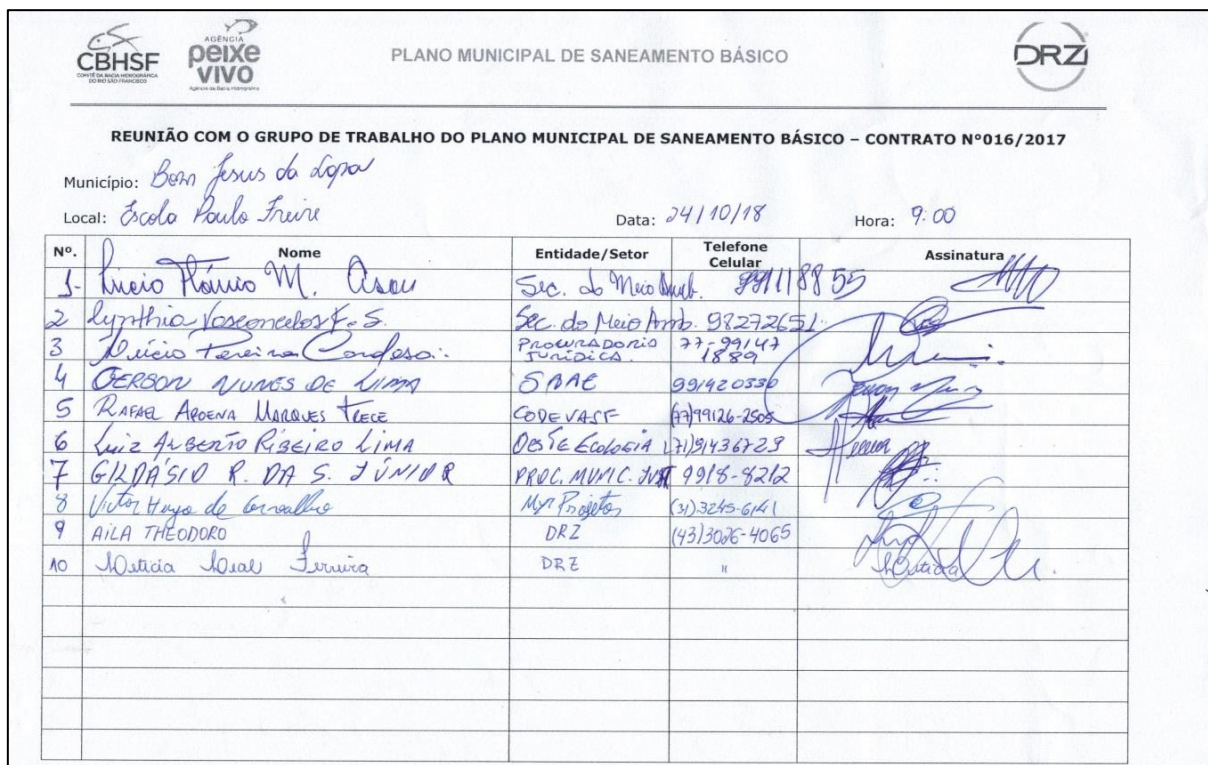 CBHSF
COMITÊ DA BACIA HIDROGRÁFICA
DO RIO SÃO FRANCISCO
AGÊNCIA
peixe
vivo
PLANO MUNICIPAL DE SANEAMENTO BÁSICO
DRZ
REUNIÃO COM O GRUPO DE TRABALHO DO PLANO MUNICIPAL DE SANEAMENTO BÁSICO – CONTRATO Nº016/2017
Município: Bom Jesus da Lapa
Local: Escola Paulo Freire Data: 24/10/18 Hora: 9:00
Nº. Nome Entidade/Setor Telefone Celular Assinatura
1- Lucio Flávio M. Sec. do Meio Amb. 991118855
2 Cynthia Vasconcelos F. S. Sec. do Meio Amb. 98272651
3 Pereira Cardoso Procuradoria Jurídica. 77-99147 1889
4 GERSON NUNES DE LIMA SAAE 991420330
5 RAFAEL MARQUES CODEVASF (77)99126-2505
6 Luiz ALBERTO RIBEIRO LIMA OESTE Ecologia (71)91436723
7 GILDÁSIO R. DA S. JÚNIOR PROC. MUNIC. 9918-8212
8 Victor Hugo de Carvalho Myr Projetos (31)-3245-6141
9 AILA THEODORO DRZ (43)3026-4065
10 Leticia Leal Ferreira DRZ " Leticia